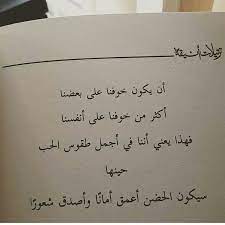 ترتيلات أنيقة
أن يكون خوفنا على بعضنا
أكثر من خوفنا على أنفسنا
فهذا يعني أننا في أجمل طقوس الحب
حينها
سيكون الحضن أعمق أمانًا وأصدق شعورًا